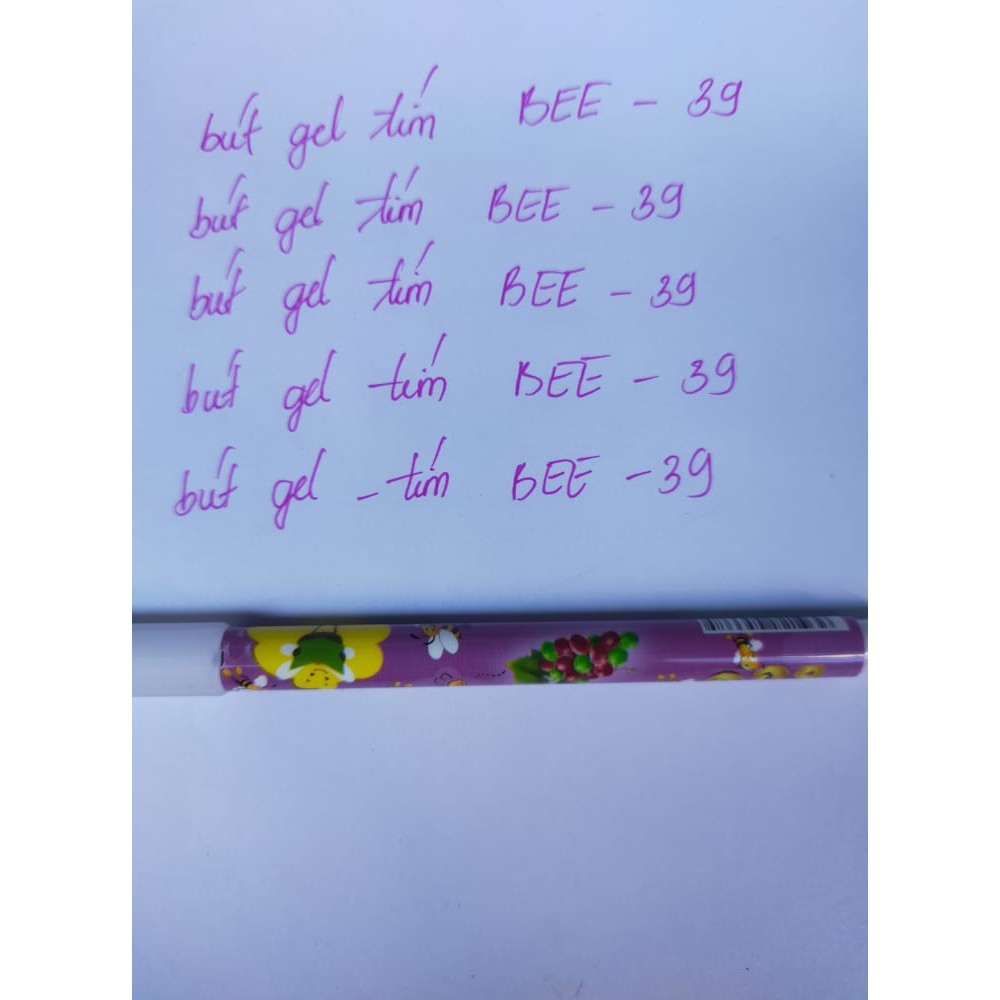 bút gel tím BEE - 39
bút gel tím BEE - 39
bút gel tím BEE - 39
bút gel tím BEE - 39
bút gel - tím BEE - 39